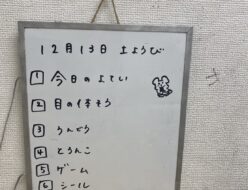 12月13日 土ようび
1 今日のよてい
2 目の体そう
3 うんどう
4 とらんこ
5 ゲーム
6 シール